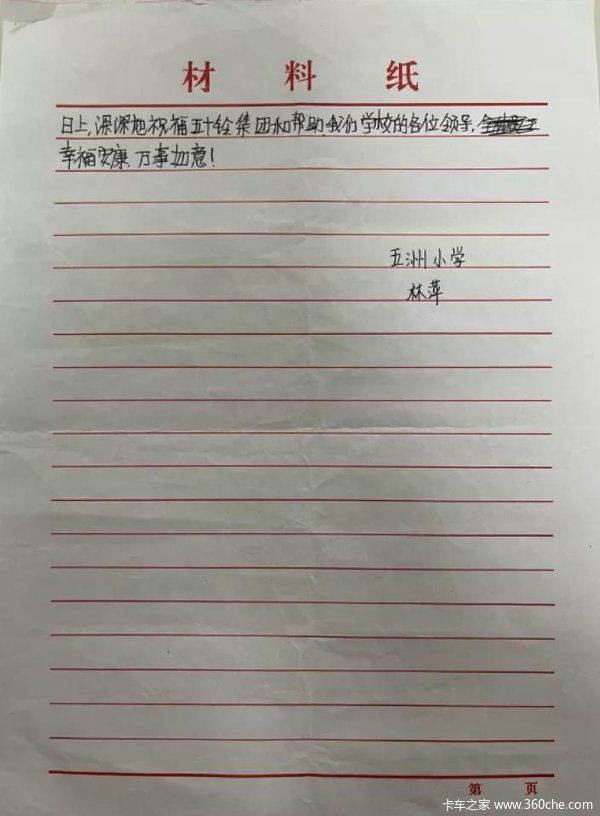 材料纸
日上,深深地祝福五十铃集团和帮助我们学校的各位领导,
幸福安康,万事如意!
五洲小学
林萍
第 页
卡车之家 www.360che.com